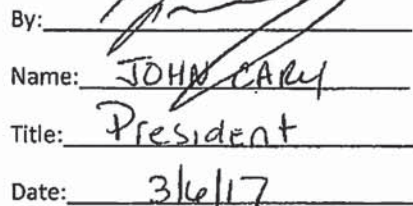 By:
Name: JOHN CARY
Title: President
Date: 3/6/17